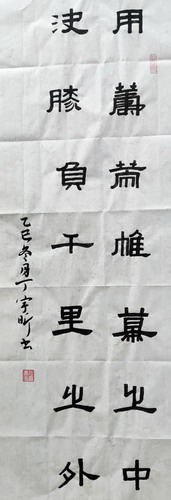 用籌策帷幕之中
决勝負千里之外
乙巳冬月丁宇昕书